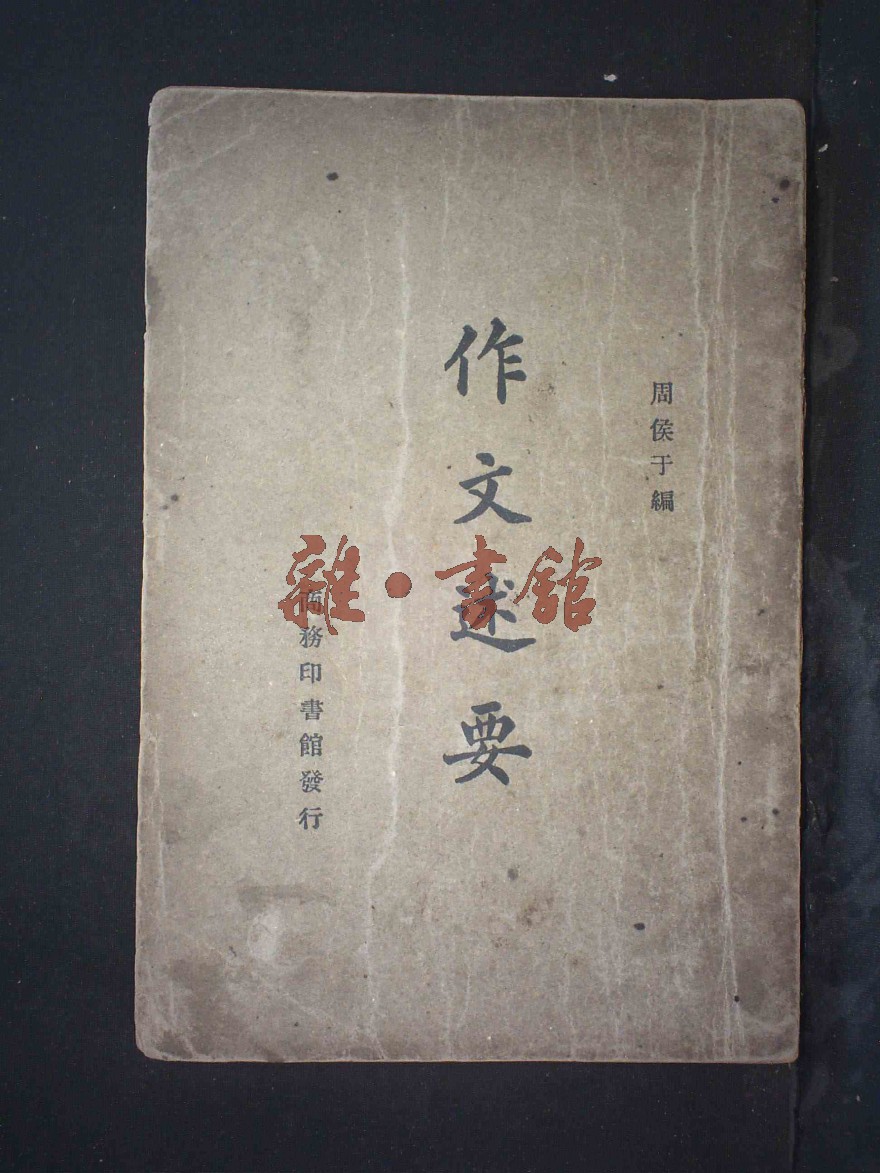 周侯于編
作文述要
商務印書館發行
雜·書館